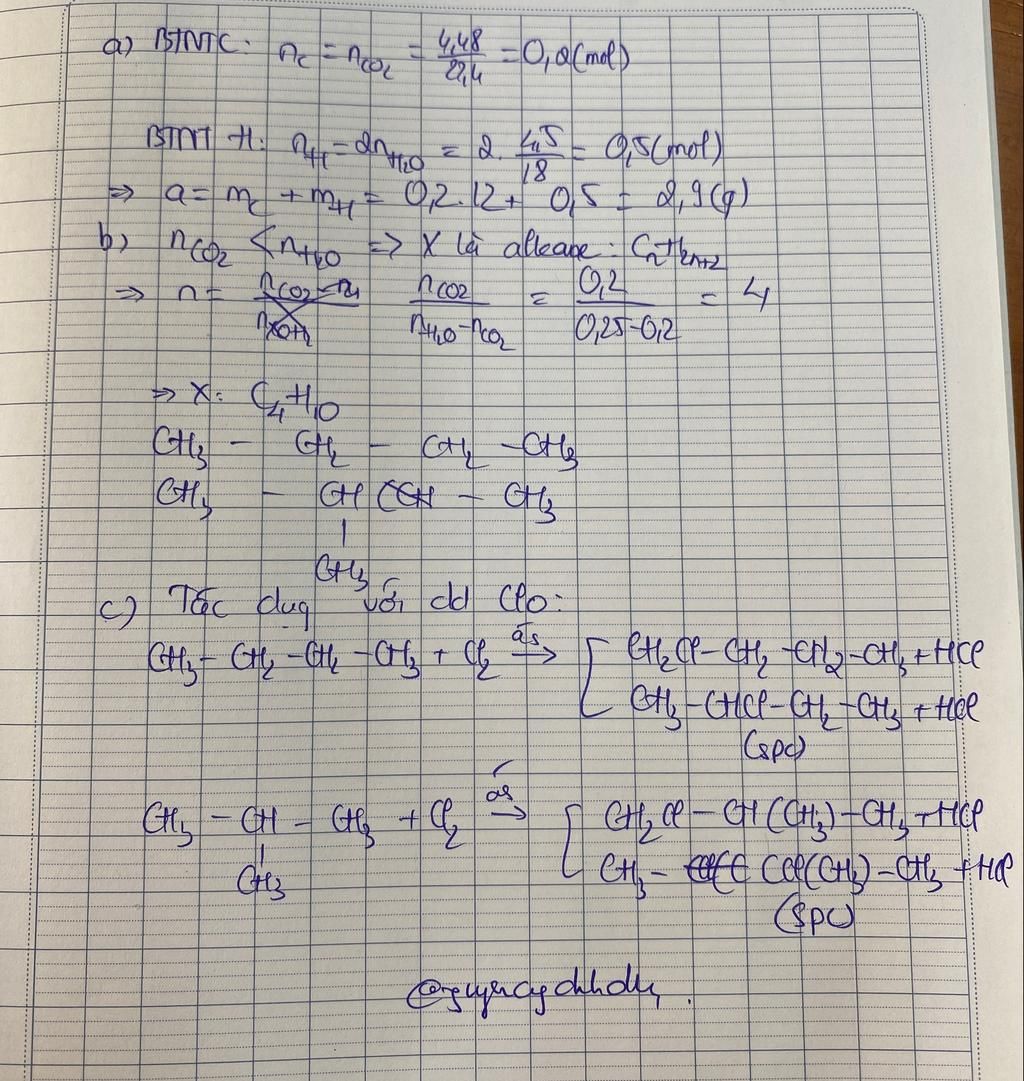 a) BTNT C: nC = nCO2 = 4,48/22,4 = 0,2 (mol)
BTNT H: nH = 2nH2O = 2. 4,5/18 = 0,5 (mol)
=> a = mC + mH = 0,2.12 + 0,5 = 2,9 (g)
b) nCO2 < nH2O => X là alkane: CnH2n+2
=> n = nCO2/(nH2O - nCO2) = 0,2/(0,25-0,2) = 4
=> X: C4H10
CH3 - CH2 - CH2 - CH3
CH3 - CH - CH3
|
CH3
c) Tác dụng với dd Clo:
CH3 - CH2 - CH2 - CH3 + Cl2 as→ [ CH2Cl - CH2 - CH2 - CH3 + HCl
CH3 - CHCl - CH2 - CH3 + HCl
(spc)
CH3 - CH - CH3 + Cl2 as→ [ CH2Cl - CH(CH3) - CH3 + HCl
|
CH3
CH3 - CCl(CH3) - CH3 + HCl
(spc)